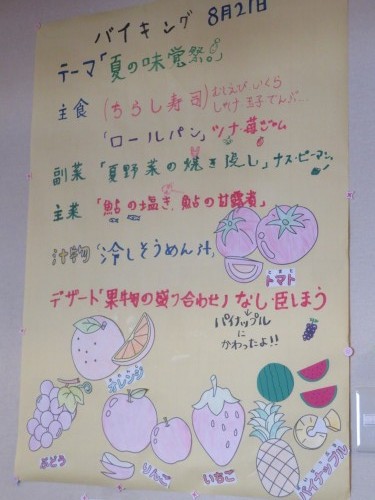 バイキング 8月21日
テーマ「夏の味覚祭。」
主食 (ちらし寿司) むしえび いくら
しゃけ 玉子 でんぶ...
「ロールパン」ツナ・苺ジャム
副菜「夏野菜の焼き浸し」ナス・ピーマン
主菜「鮎の塩焼き、鮎の甘露煮」
汁物「冷しそうめん汁」
トマト
デザート「果物の盛り合わせ」なし・巨ほう
パイナップル
に
かわったよ!!
オレンジ
ぶどう
りんご
いちご
パイナップル